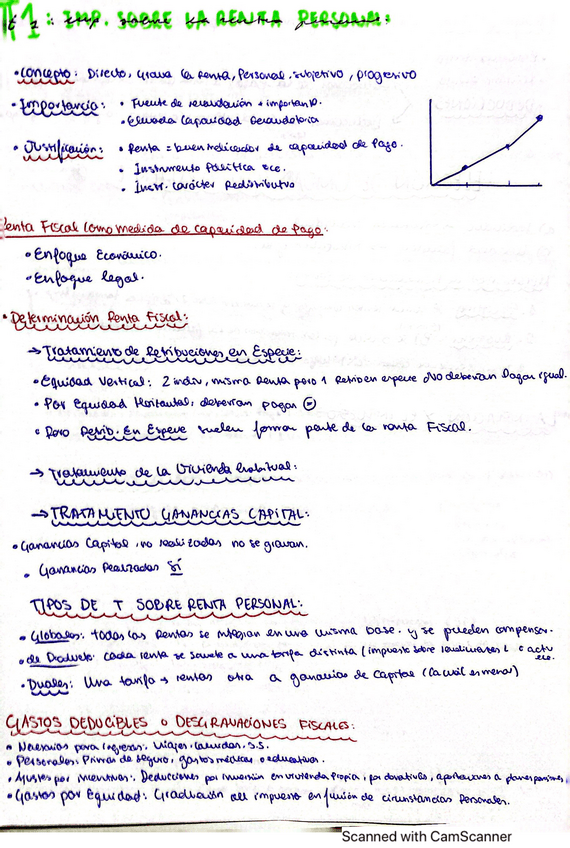 T1: IMP. SOBRE LA RENTA PERSONAL:
• Concepto: Directo, Grava la Renta, Personal, subjetivo, progresivo
• Importancia: • Fuente de recaudación + importante.
• Elevada Capacidad Recaudatoria
• Justificación: • Renta = buen indicador de capacidad de Pago.
• Instrumento Política ece.
• Instr. carácter Redistributivo
Renta Fiscal como medida de capacidad de Pago:
• Enfoque Económico.
• Enfoque legal.
• Determinación Renta Fiscal:
→ Tratamiento de Retribuciones en Especie:
• Equidad Vertical: 2 indiv, misma Renta pero 1 Retrib en especie No deberían Pagar igual.
• Por Equidad Horizontal: deberían pagar =
• Pero Retrib. En Especie suelen formar parte de la renta Fiscal.
→ Tratamiento de la Vivienda habitual:
→ TRATAMIENTO GANANCIAS CAPITAL:
• Ganancias Capital no realizadas no se gravan.
• Ganancias Realizadas SÍ
TIPOS DE T SOBRE RENTA PERSONAL:
• Globales: todas las Rentas se integran en una misma base. y se pueden compensar.
• de Producto: cada renta se somete a una tarifa distinta (impuesto sobre rendimientos L o activ ece.
• Duales: Una tarifa → rentas otra a ganancias de Capital (la cuál es menor)
GASTOS DEDUCIBLES O DESGRAVACIONES FISCALES:
• Necesarios para ingresos: viajes, comidas, s.s.
• Personales: Primas de seguro, gastos médicos o educativos.
• Ajustes por incentivos: Deducciones por inversión en vivienda Propia, por donativos, aportaciones a planes pensiones,
• Gastos por Equidad: Graduación del impuesto en función de circunstancias Personales.
Scanned with CamScanner